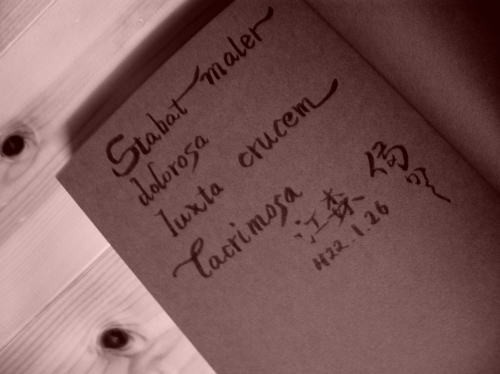 Stabat mater
dolorosa
luxta crucem
Lacrimosa
江森 備
H22.1.26